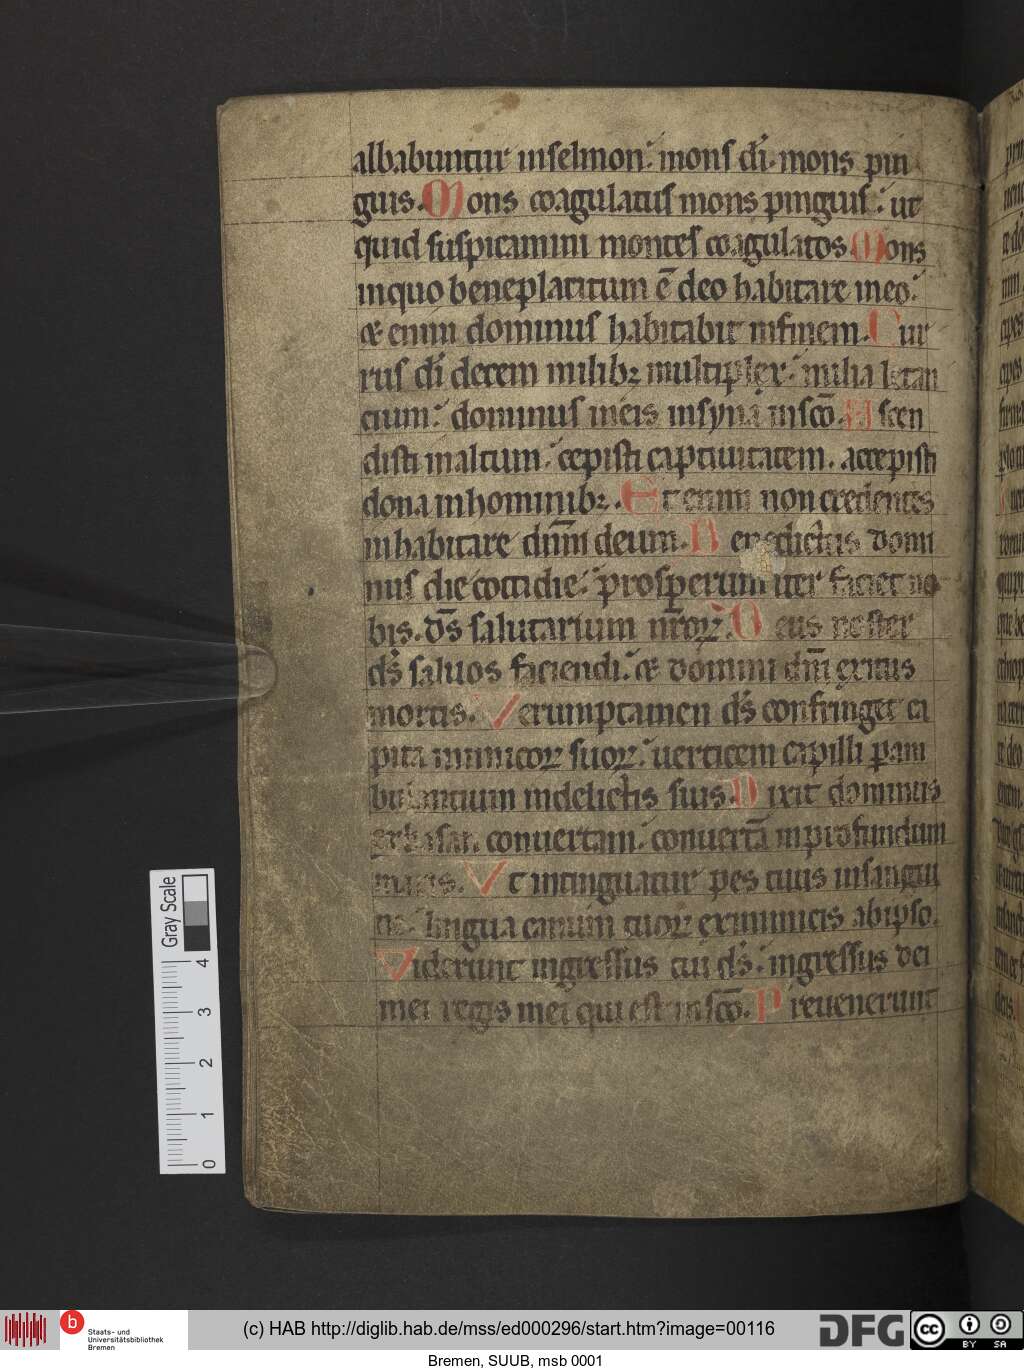 albabuntur inselmon: mons di. mons pin
guis. Mons coagulatus mons pinguis: ut
quid suspicamini montes coagulatos Mons
inquo beneplacitum ē deo habitare ineo:
& enim dominus habitabit infinem. Cur
rus di decem milibꝫ multiplex: milia letan
cium: dominus ineis insyna insco. Ascen
disti inaltum: cepisti captiuitatem. accepisti
dona inhominibꝫ. Et enim non credentes
inhabitare dnm deum. Benedictus domi
nus die cottidie: prosperum iter faciet no
bis. ds salutarium nroꝝ. Deus noster
ds saluos faciendi: & domini dni exitus
mortis. Verumptamen ds confringet ca
pita inimicoꝝ suoꝝ: uerticem capilli pam
bulancium indelictis suis. Dixit dominus
exbasan conuertam: conuertā inprofundum
maris. Vt intinguatur pes tuus insangui
ne: lingua canum tuoꝝ exinimicis abipso.
Viderunt ingressus tui ds: ingressus dei
mei regis mei qui est insco. Preuenerunt
Gray Scale
4
3
2
1
0
b
Staats- und
Universitätsbibliothek
Bremen
(c) HAB http://diglib.hab.de/mss/ed000296/start.htm?image=00116
DFG
cc
BY SA
Bremen, SUUB, msb 0001